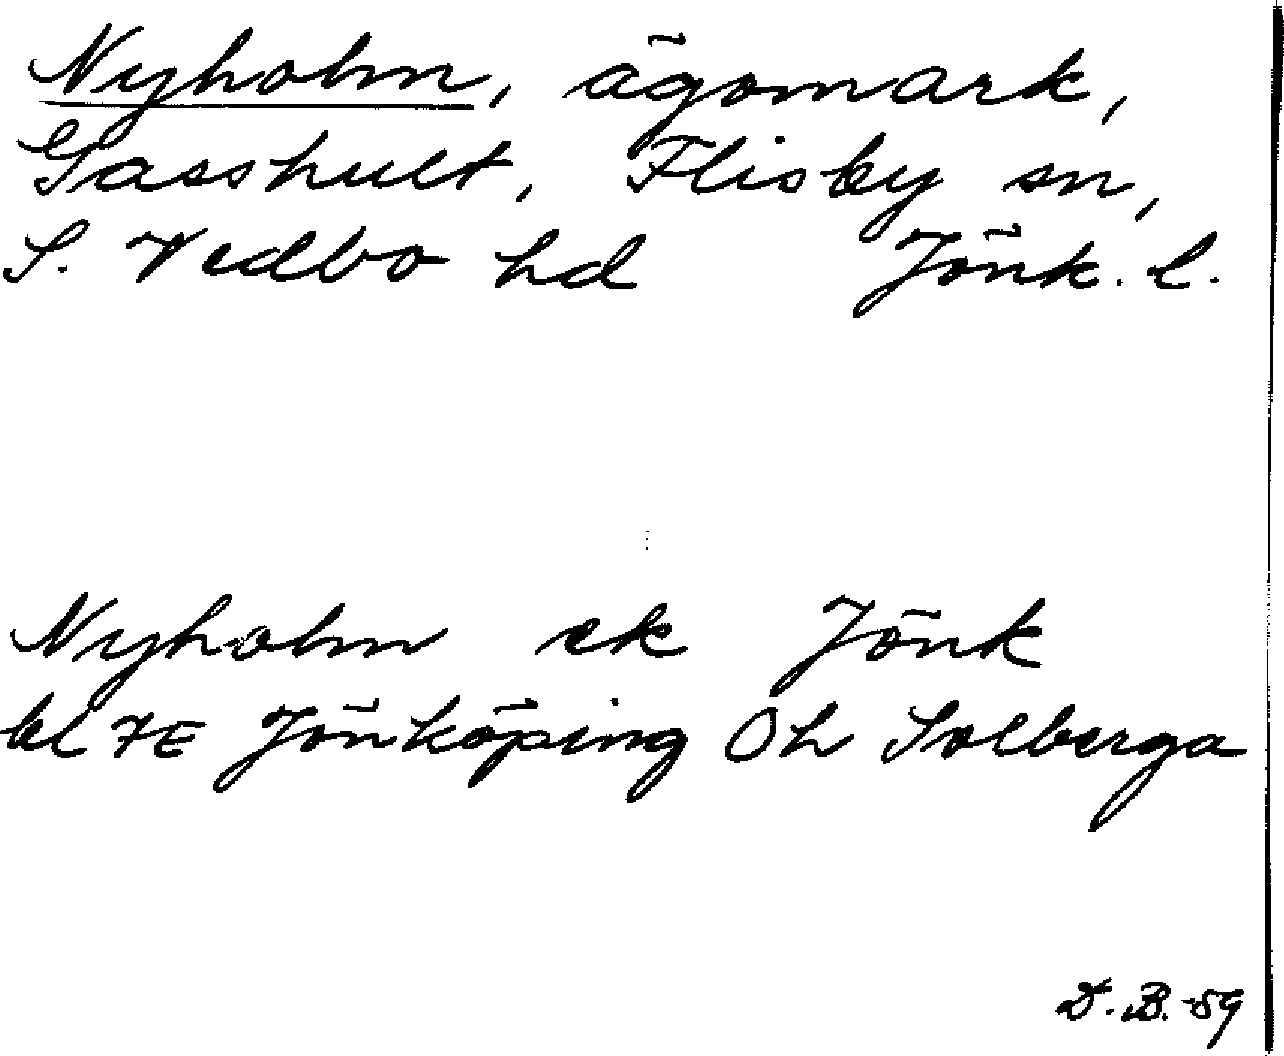 Nyholm, ägomark,
Gasshult, Flisby sn,
S. Vedbo hd Jönk. l.
Nyholm ek Jönk
bl 7E Jönköping Öh Solberga
D. B. -59